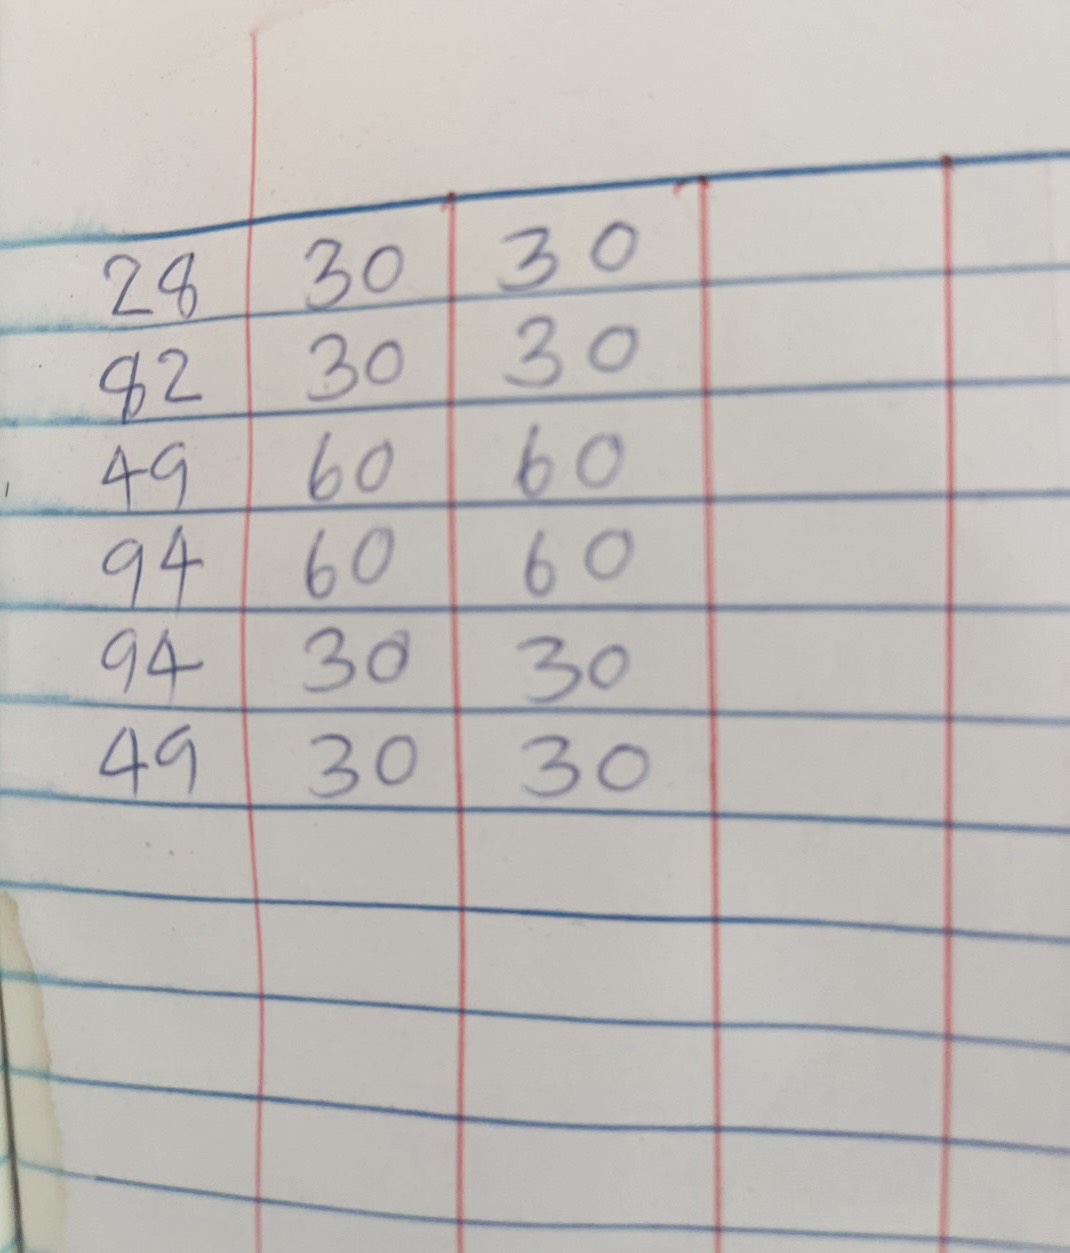 28 30 30
82 30 30
49 60 60
94 60 60
94 30 30
49 30 30